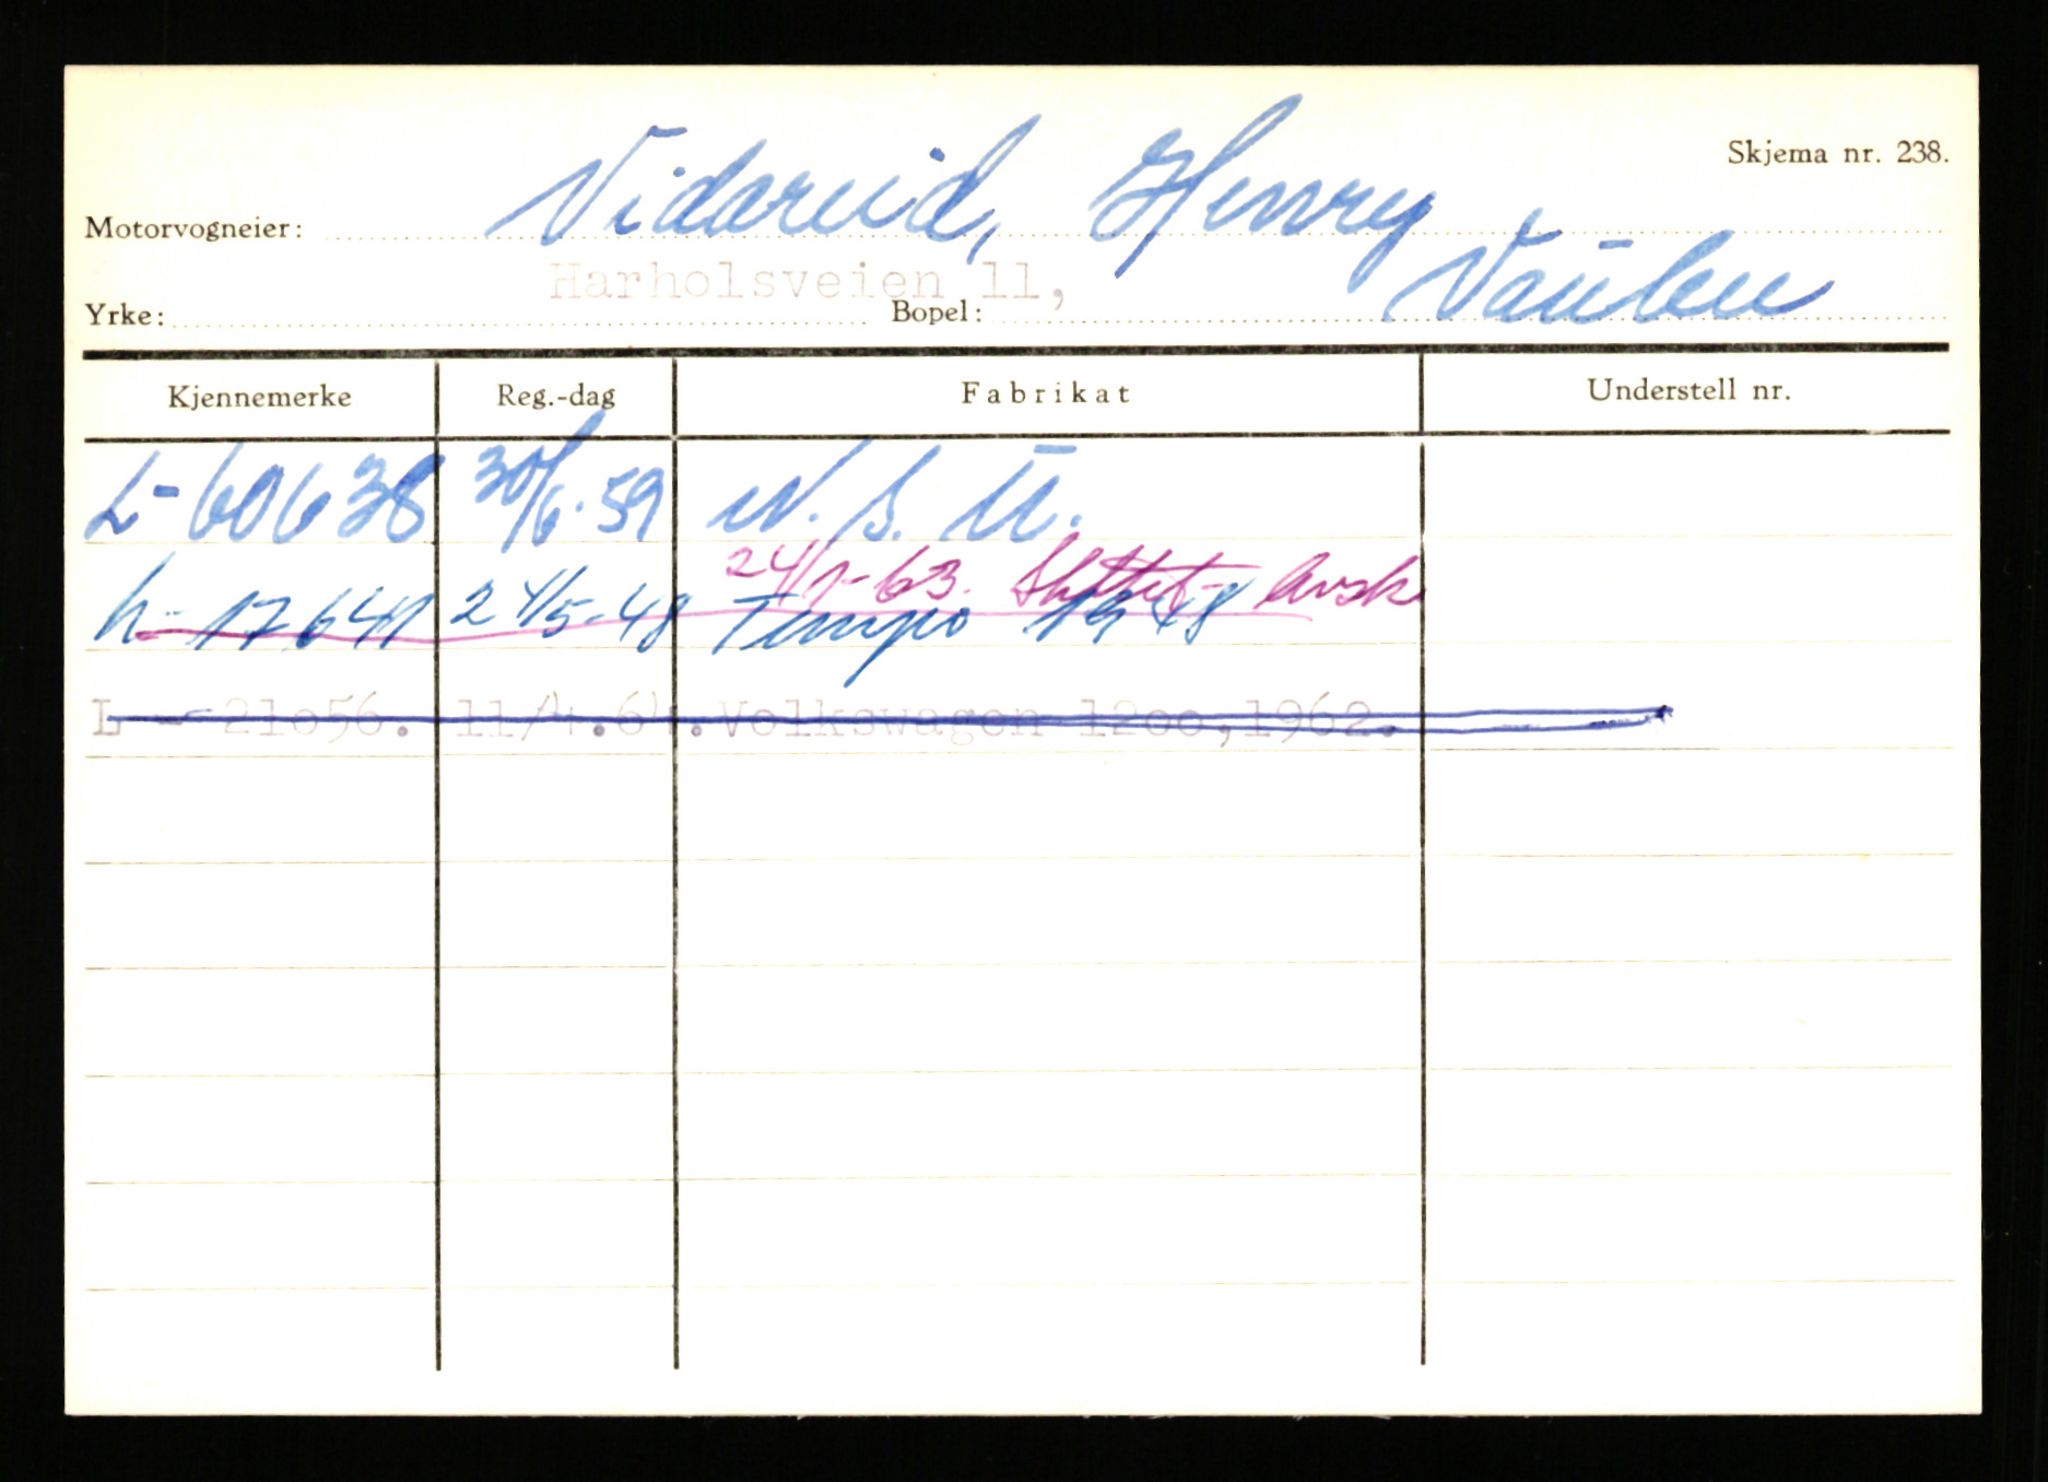 Skjema nr. 238.
Motorvogneier: Vidareid, Henry
Harholsveien 11,
Yrke: Bopel: Vaulen
Kjennemerke Reg.-dag Fabrikat Understell nr.
L-60638 30/6-59 N.S.U.
24/1-63. Slettet avsk
L-17641 24/5-48 Tempo 1948
L - 21056. 11/4.64. Volkswagen 1200,1962.